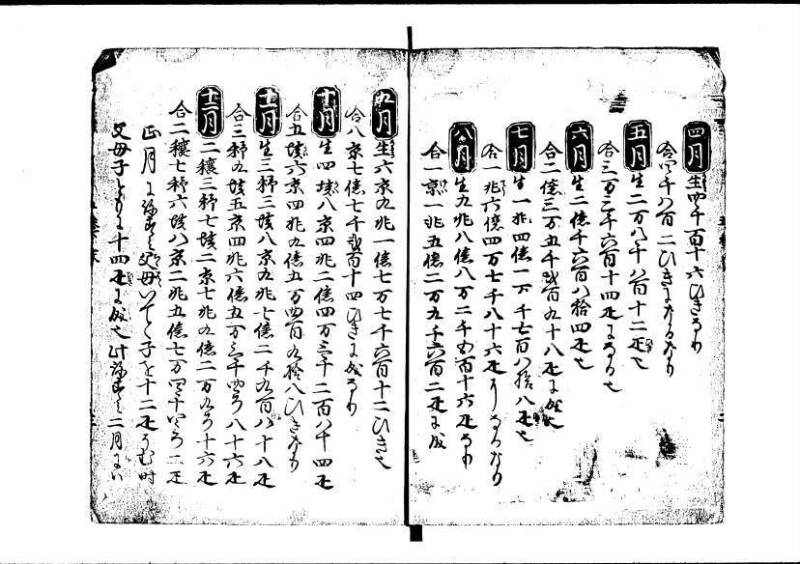 四月 生四千百十六ひきなり
合四千八百二ひきになるなり
五月 生二万八千八百十二疋也
合三万三千六百十四疋になる也
六月 生二億千六百八拾四疋也
合二億三万五千弐百九十八疋に成也
七月 生一兆四億一万千七百八拾八疋也
合一兆六億四万七千八十六疋になるなり
八月 生九兆八億八万二千五百十六疋なり
合一京一兆五億二万九千六百二疋に成
九月 生六京九兆一億七万七千六百十二ひき也
合八京七億七千弐百十四ひきに成なり
十月 生四垓八京四兆二億四万三千二百八十四疋
合五垓六京四兆九億五万四百九拾八ひきなり
十一月 生三秭三垓八京九兆七億二千九百八十八疋
合三秭九垓五京四兆六億五万三千四百八十六疋
十二月 二穣三秭七垓二京七兆九億二万九百十六疋
合二穣七秭六垓八京二兆五億七万四千四百二疋
正月にねずみ父母いでて子を十二疋うむ時
父母子ともに十四疋に成也此ねずみ二月には